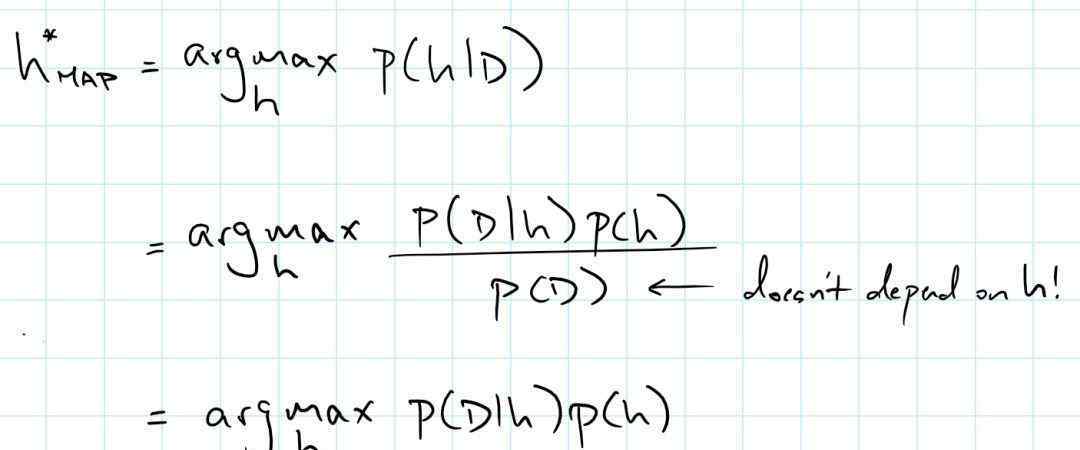 h*MAP = argmax h p(h|D)
= argmax h p(D|h)p(h) / p(D) ← doesn't depend on h!
= argmax h p(D|h)p(h)